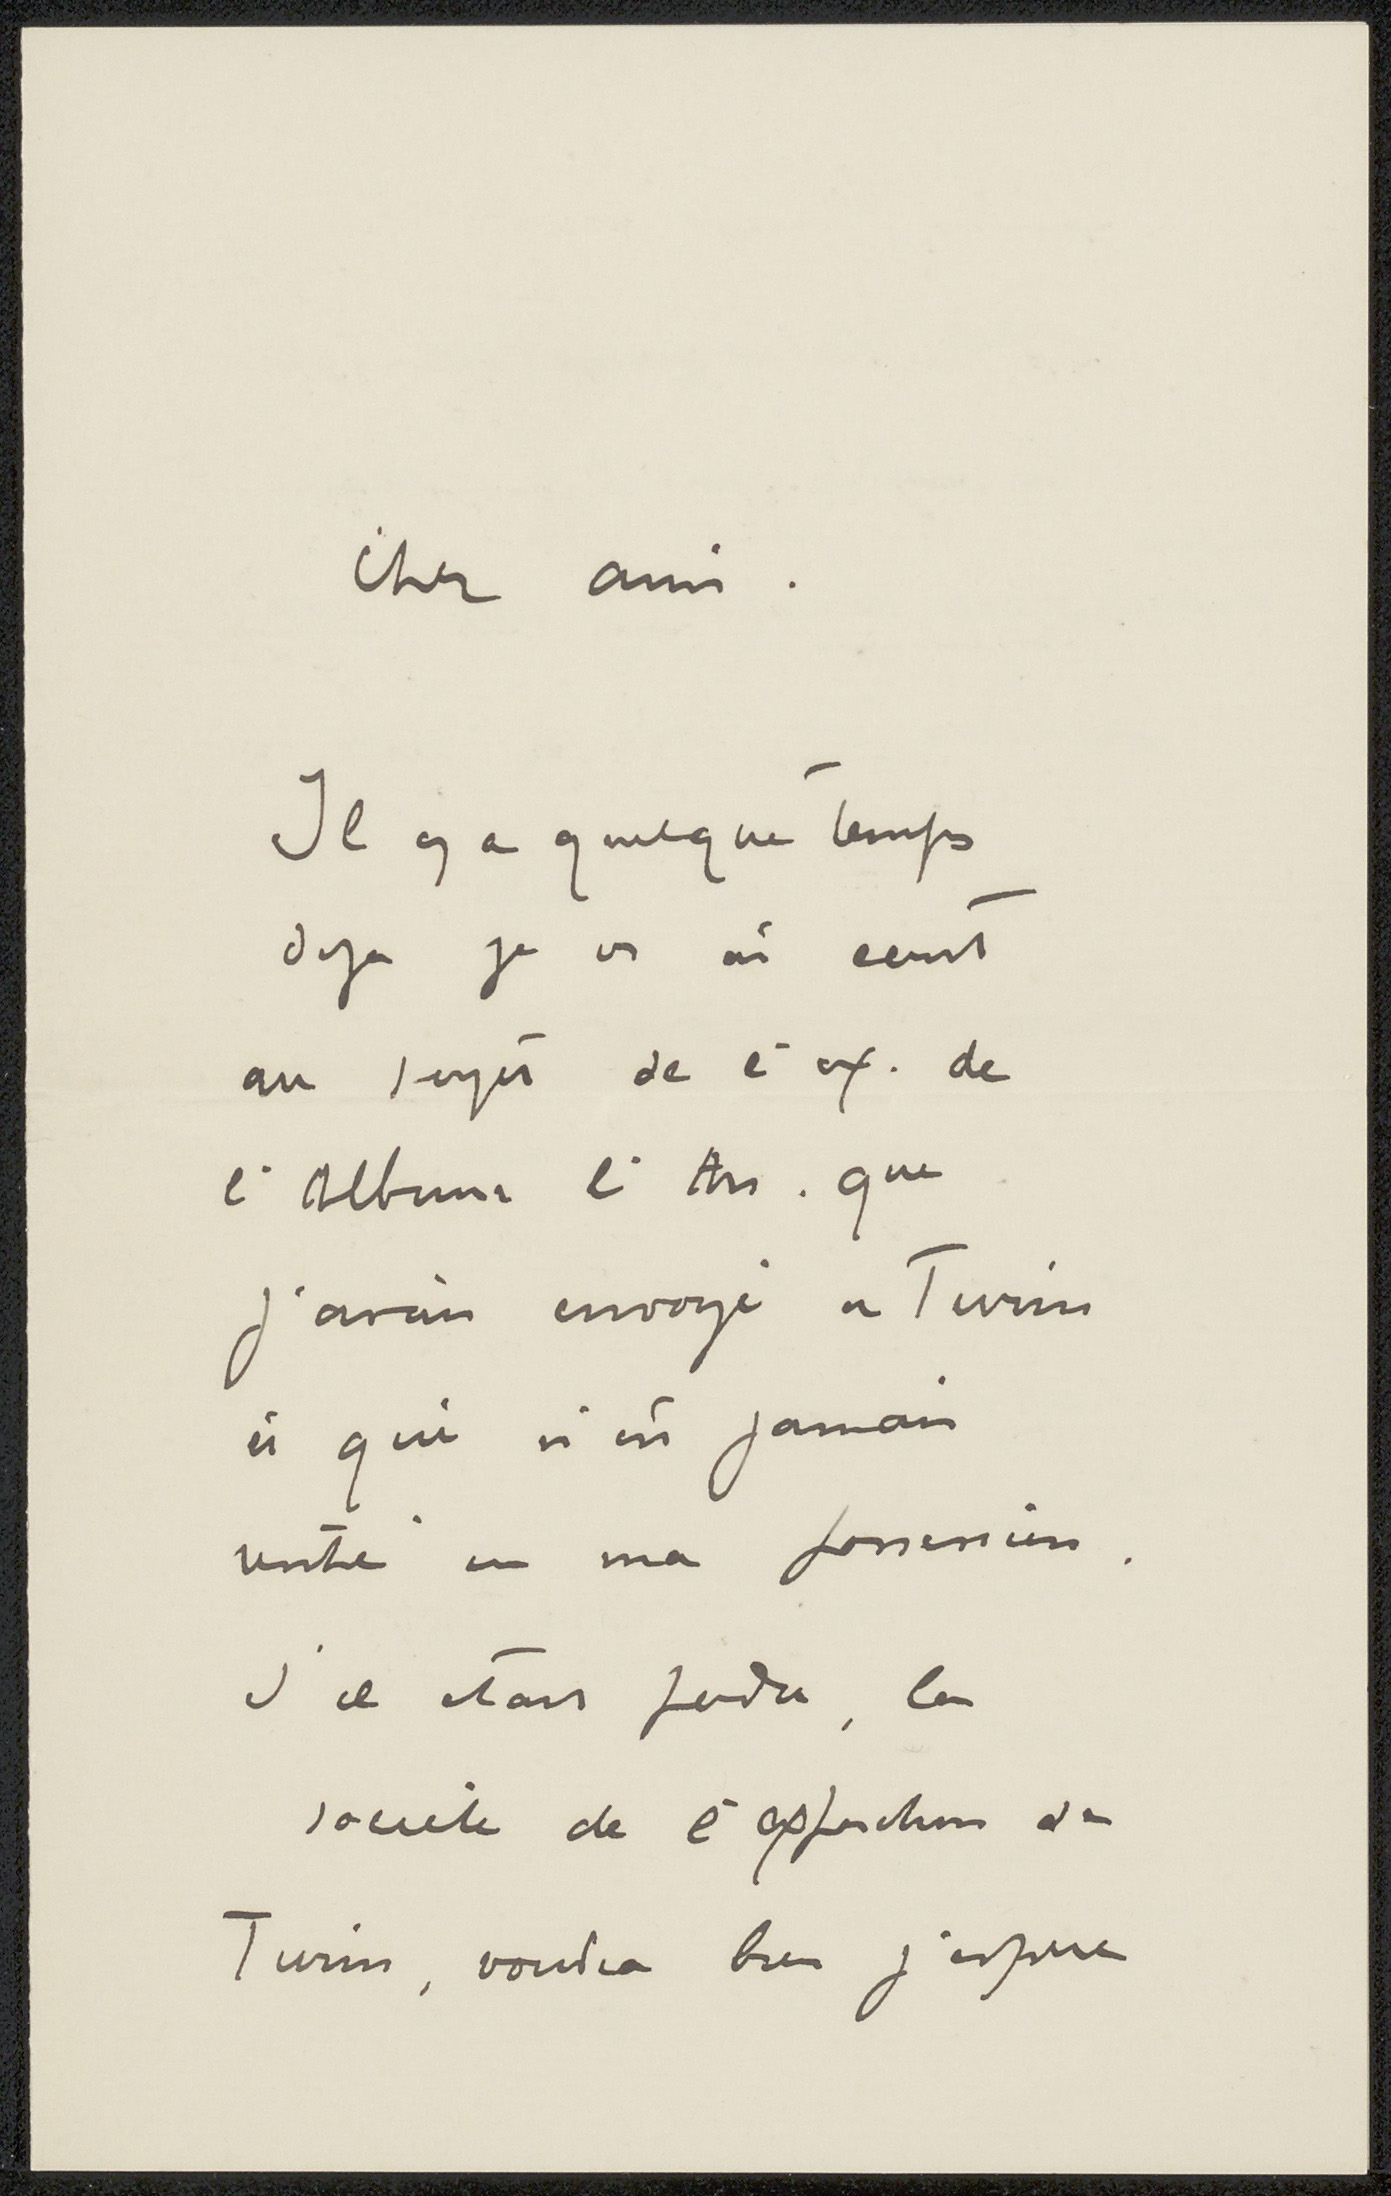 Cher ami.
Il y a quelque temps
deja je vs ai ecrit
au sujet de l'ex. de
l'Album l'An. que
j'avais envoyé a Turin
et qui n'est jamais
rentré en ma possession.
S'il etait perdu, la
societe de l'exposition de
Turin, voudra bien j'espere